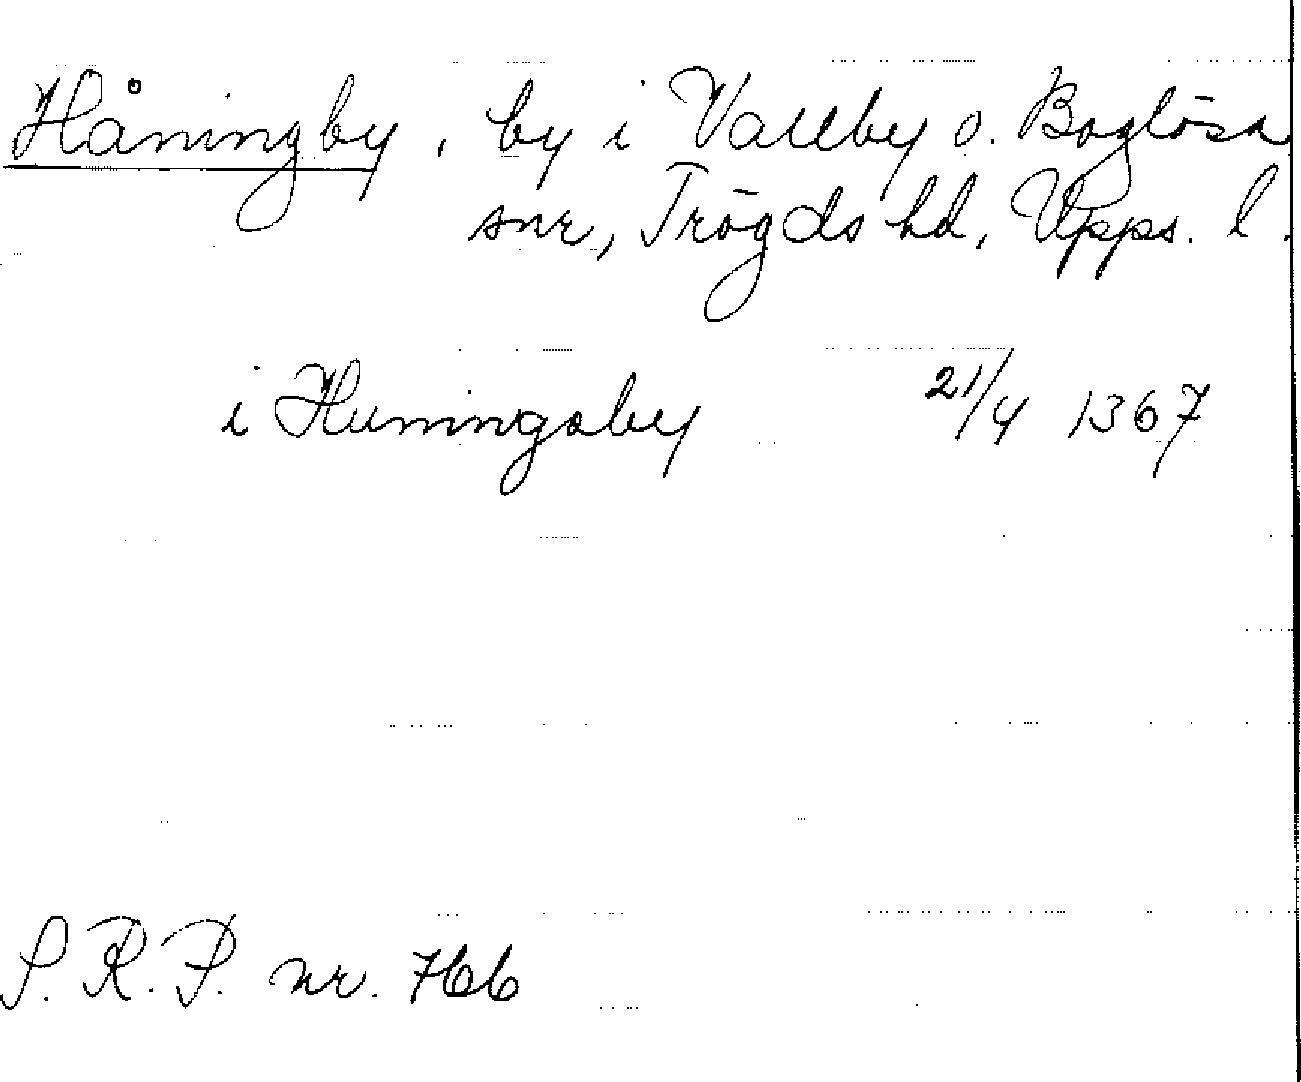 Håningby, by i Vallby o. Boglösa
snr, Trögds hd, Upps. l.
i Huningsby 21/4 1367
S.R.P. nr. 766